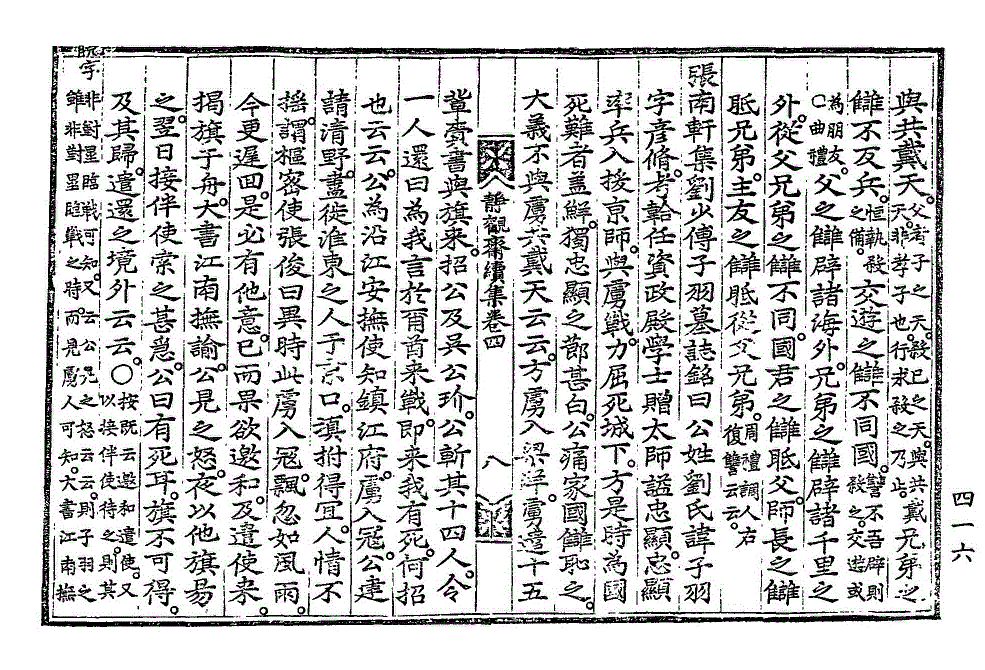 與共戴天。父者子之天。殺己之天。與共戴天。非孝子也。行求殺之。乃止。兄弟之
讎不反兵。恒執殺之備。交遊之讎不同國。讐不吾辟。則殺之。交遊或爲朋友。
○曲禮。父之讎辟諸海外。兄弟之讎辟諸千里之
外。從父兄弟之讎不同國。君之讎眡父。師長之讎
眡兄弟。主友之讎眡從父兄弟。周禮調人。右復讐云云。
張南軒集劉少傅子羽墓誌銘曰。公姓劉氏諱子羽
字彦脩。考韐任資政殿學士贈太師諡忠顯。忠顯
率兵入援京師。與虜戰。力屈死城下。方是時爲國
死難者蓋鮮。獨忠顯之節甚白。公痛家國讎恥之
大義不與虜共戴天云云。方虜入梁洋。虜遣十五
靜觀齋續集卷四
八
輩賷書與旗來。招公及吳公玠。公斬其十四人。令
一人還曰。爲我言於爾酋。來戰。即來。我有死。何招
也云云。公爲沿江安撫使知鎭江府。虜入寇。公建
請清野。盡徙淮東之人于京口。滇拊得宜。人情不
搖。謂樞密使張俊曰。異時此虜入寇。飄忽如風雨。
今更遲回。是必有他意。已而果欲邀和。及遣使來。
揭旗于舟。大書江南撫諭。公見之怒。夜以他旗易
之。翌日接伴使索之甚急。公曰。有死耳。旗不可得。
及其歸。遣還之境外云云。○按既云邀和遣使。又以接伴使待之。則其
既字
非對壘臨戰可知。又云公見之怒云云。則子羽之
雖非對壘臨戰之時。而見虜人可知。大書江南撫
四一六